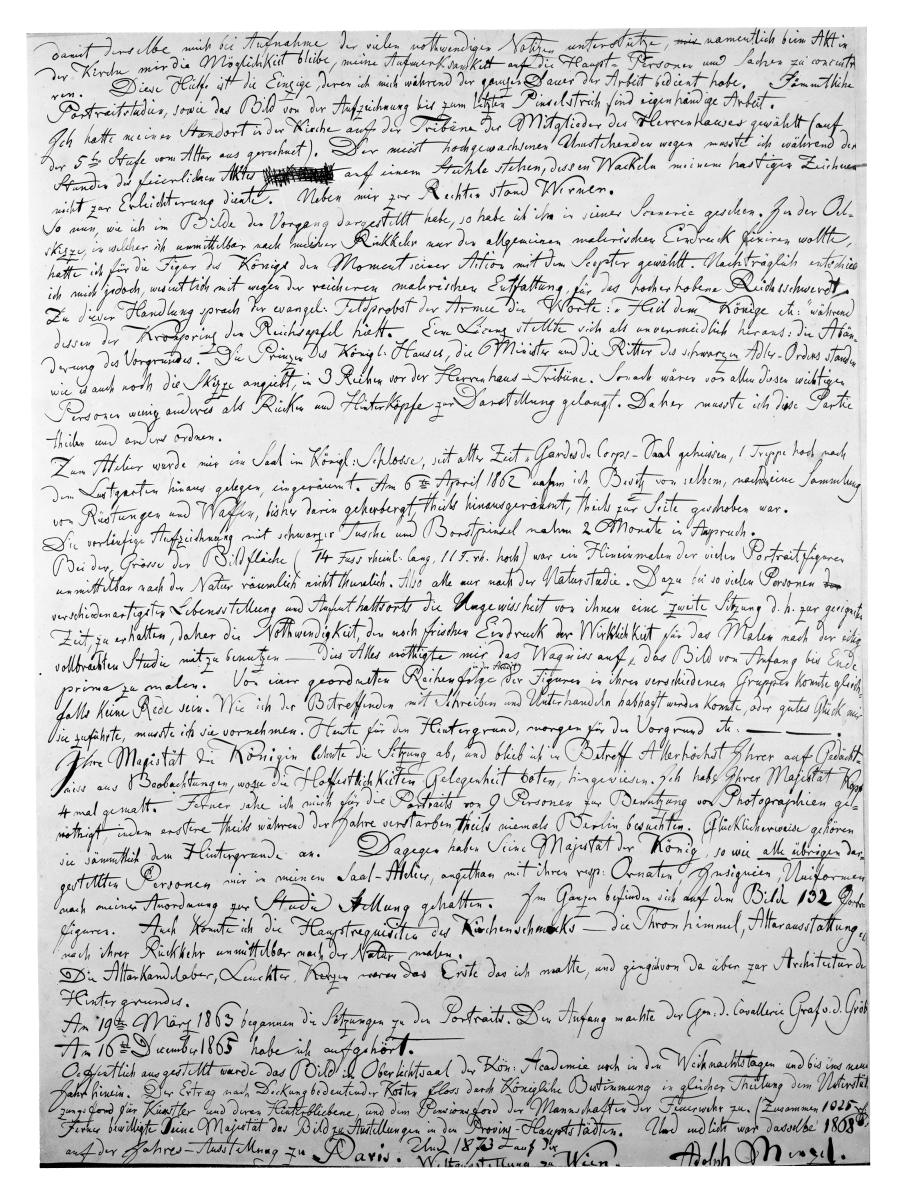 damit derselbe mich bei Aufnahme der vielen nothwendigen Notizen unterstütze, namentlich beim Akt in
der Kirche mir die Möglichkeit bleibe, meine Aufmerksamkeit auf die Haupt-Personen und Sachen zu concentri
ren. Diese Hülfe ist die Einzige, deren ich mich während der ganzen Dauer der Arbeit bedient habe. Sämmtliche
Portraitstudien, sowie das Bild von der Aufzeichnung bis zum letzten Pinselstrich sind eigenhändige Arbeit.
Ich hatte meinen Standort in der Kirche auf der Tribüne der Mitglieder des Herrenhauses gewählt (auf
der 5ten Stufe vom Altar aus gerechnet). Der meist hochgewachsenen Umstehenden wegen musste ich während der
Stunden des feierlichen Aktes auf einem Stuhle stehen, dessen Wackeln meinem hastigen Zeichnen
nicht zur Erleichterung diente. Neben mir zur Rechten stand Werner.
So nun, wie ich im Bilde den Vorgang dargestellt habe, so habe ich ihn in seiner Scenerie gesehen. In der Oel-
skizze, in welcher ich unmittelbar nach meiner Rückkehr nur den allgemeinen malerischen Eindruck fixiren wollte,
hatte ich für die Figur des Königs den Moment seiner Aktion mit dem Scepter gewählt. Nachträglich entschied
ich mich jedoch, wesentlich mit wegen der reicheren malerischen Entfaltung für das hocherhobene Reichsschwerdt.
Zu dieser Handlung sprach der evangel: Feldprobst der Armee die Worte: "Heil dem Könige etc:" während
dessen der Kronprinz den Reichsapfel hält. Eine Lösung stellte sich als unvermeidlich heraus: die Abän-
derung des Vorgrundes. Die Prinzen des Königl: Hauses, die 6 Minister und die Ritter des schwarzen Adler-Ordens standen
wie es auch noch die Skizze angiebt, in 3 Reihen vor der Herrenhaus-Tribüne. Sonach wären von allen diesen wichtigen
Personen wenig anderes als Rücken und Hinterköpfe zur Darstellung gelangt. Daher musste ich diese Partie
theilen und anders ordnen.
Zum Atelier wurde mir ein Saal im Königl: Schlosse, seit alter Zeit Gardes du Corps-Saal geheissen, 1 Treppe hoch nach
dem Lustgarten hinaus gelegen, eingeräumt. Am 6ten April 1862 nahm ich Besitz von selben, nachdem eine Sammlung
von Rüstungen und Waffen, bisher darin geherbergt, theils hinausgeräumt, theils zur Seite geschoben war.
Die vorläufige Aufzeichnung mit schwarzer Tusche und Borstpinsel nahm 2 Monate in Anspruch.
Bei der Grösse der Bildfläche (14 Fuss rheinl: lang, 11 F. rh. hoch) war ein Hineinmalen der vielen Portraitfiguren
unmittelbar nach der Natur räumlich nicht thunlich. Also alle nur nach der Naturstudie. Dazu bei so vielen Personen
verschiedenartigster Lebensstellung und Aufenthaltsorts die Ungewissheit von ihnen eine zweite Sitzung d. h. zur geeigneten
Zeit, zu erhalten, daher die Nothwendigkeit, den noch frischen Eindruck der Wirklichkeit für das Malen nach der eben
vollbrachten Studie mit zu benutzen — dies Alles nöthigte mir das Wagniss auf, das Bild von Anfang bis Ende
prima zu malen. Von einer geordneten Reihenfolge der Figuren in ihren verschiedenen Gruppen konnte gleich
falls keine Rede sein. Wie ich der Betreffenden mit Schreiben und Unterhandeln habhaft werden konnte, oder gutes Glück mir
sie zuführte, musste ich sie vornehmen. Heute für den Hintergrund, morgen für den Vorgrund etc. — —
Ihre Majestät die Königin lehnte die Sitzung ab, und blieb ich in Betreff Allerhöchst Ihrer auf Gedächt-
niss aus Beobachtungen, wozu die Hoffestlichkeiten Gelegenheit boten, hingewiesen. Ich habe Ihrer Majestät Kopf
4 mal gemalt. Ferner sahe ich mich für die Portraits von 9 Personen zur Benutzung von Photographien ge-
nöthigt, indem erstere theils während der Jahre verstarben theils niemals Berlin besuchten. Glücklicherweise gehören
sie sämmtlich dem Hintergrunde an. Dagegen haben Seine Majestät der König, so wie alle übrigen dar-
gestellten Personen mir in meinem Saal-Atelier, angethan mit ihren resp: Ornaten, Insignien, Uniformen
nach meiner Anordnung zur Studie Stellung gehalten. Im Ganzen befinden sich auf dem Bilde 132 Portrait
figuren. Auch konnte ich die Hauptrequisiten des Kirchenschmucks — die Thronhimmel, Altarausstattung etc
nach ihrer Rückkehr unmittelbar nach der Natur malen.
Die Altarkandelaber, Leuchter, Kerzen waren das Erste das ich malte, und ging ich von da über zur Architectur des
Hintergrundes.
Am 19ten März 1863 begannen die Sitzungen zu den Portraits. Den Anfang machte der Gen: d. Cavallerie Graf v. d. Gröb
Am 16ten December 1865 habe ich aufgehört.
Oeffentlich ausgestellt wurde das Bild im Oberlichtsaal der Kön: Academie noch in den Weihnachtstagen und bis ins neue
Jahr hinein. Der Ertrag nach Deckung bedeutender Kosten floss durch Königliche Bestimmung in gleicher Theilung dem Unterstüt
zungsfond für Künstler und deren Hinterbliebene, und dem Pensionsfond der Mannschaften der Feuerwehr zu. (Zusammen 1025
Ferner bewilligte Seine Majestät das Bild zu Ausstellungen in den Provinz-Hauptstädten. Und endlich war dasselbe 1868
auf der Jahres-Ausstellung zu Paris. Und 1873 auf der
Weltausstellung zu Wien. Adolph Menzel.